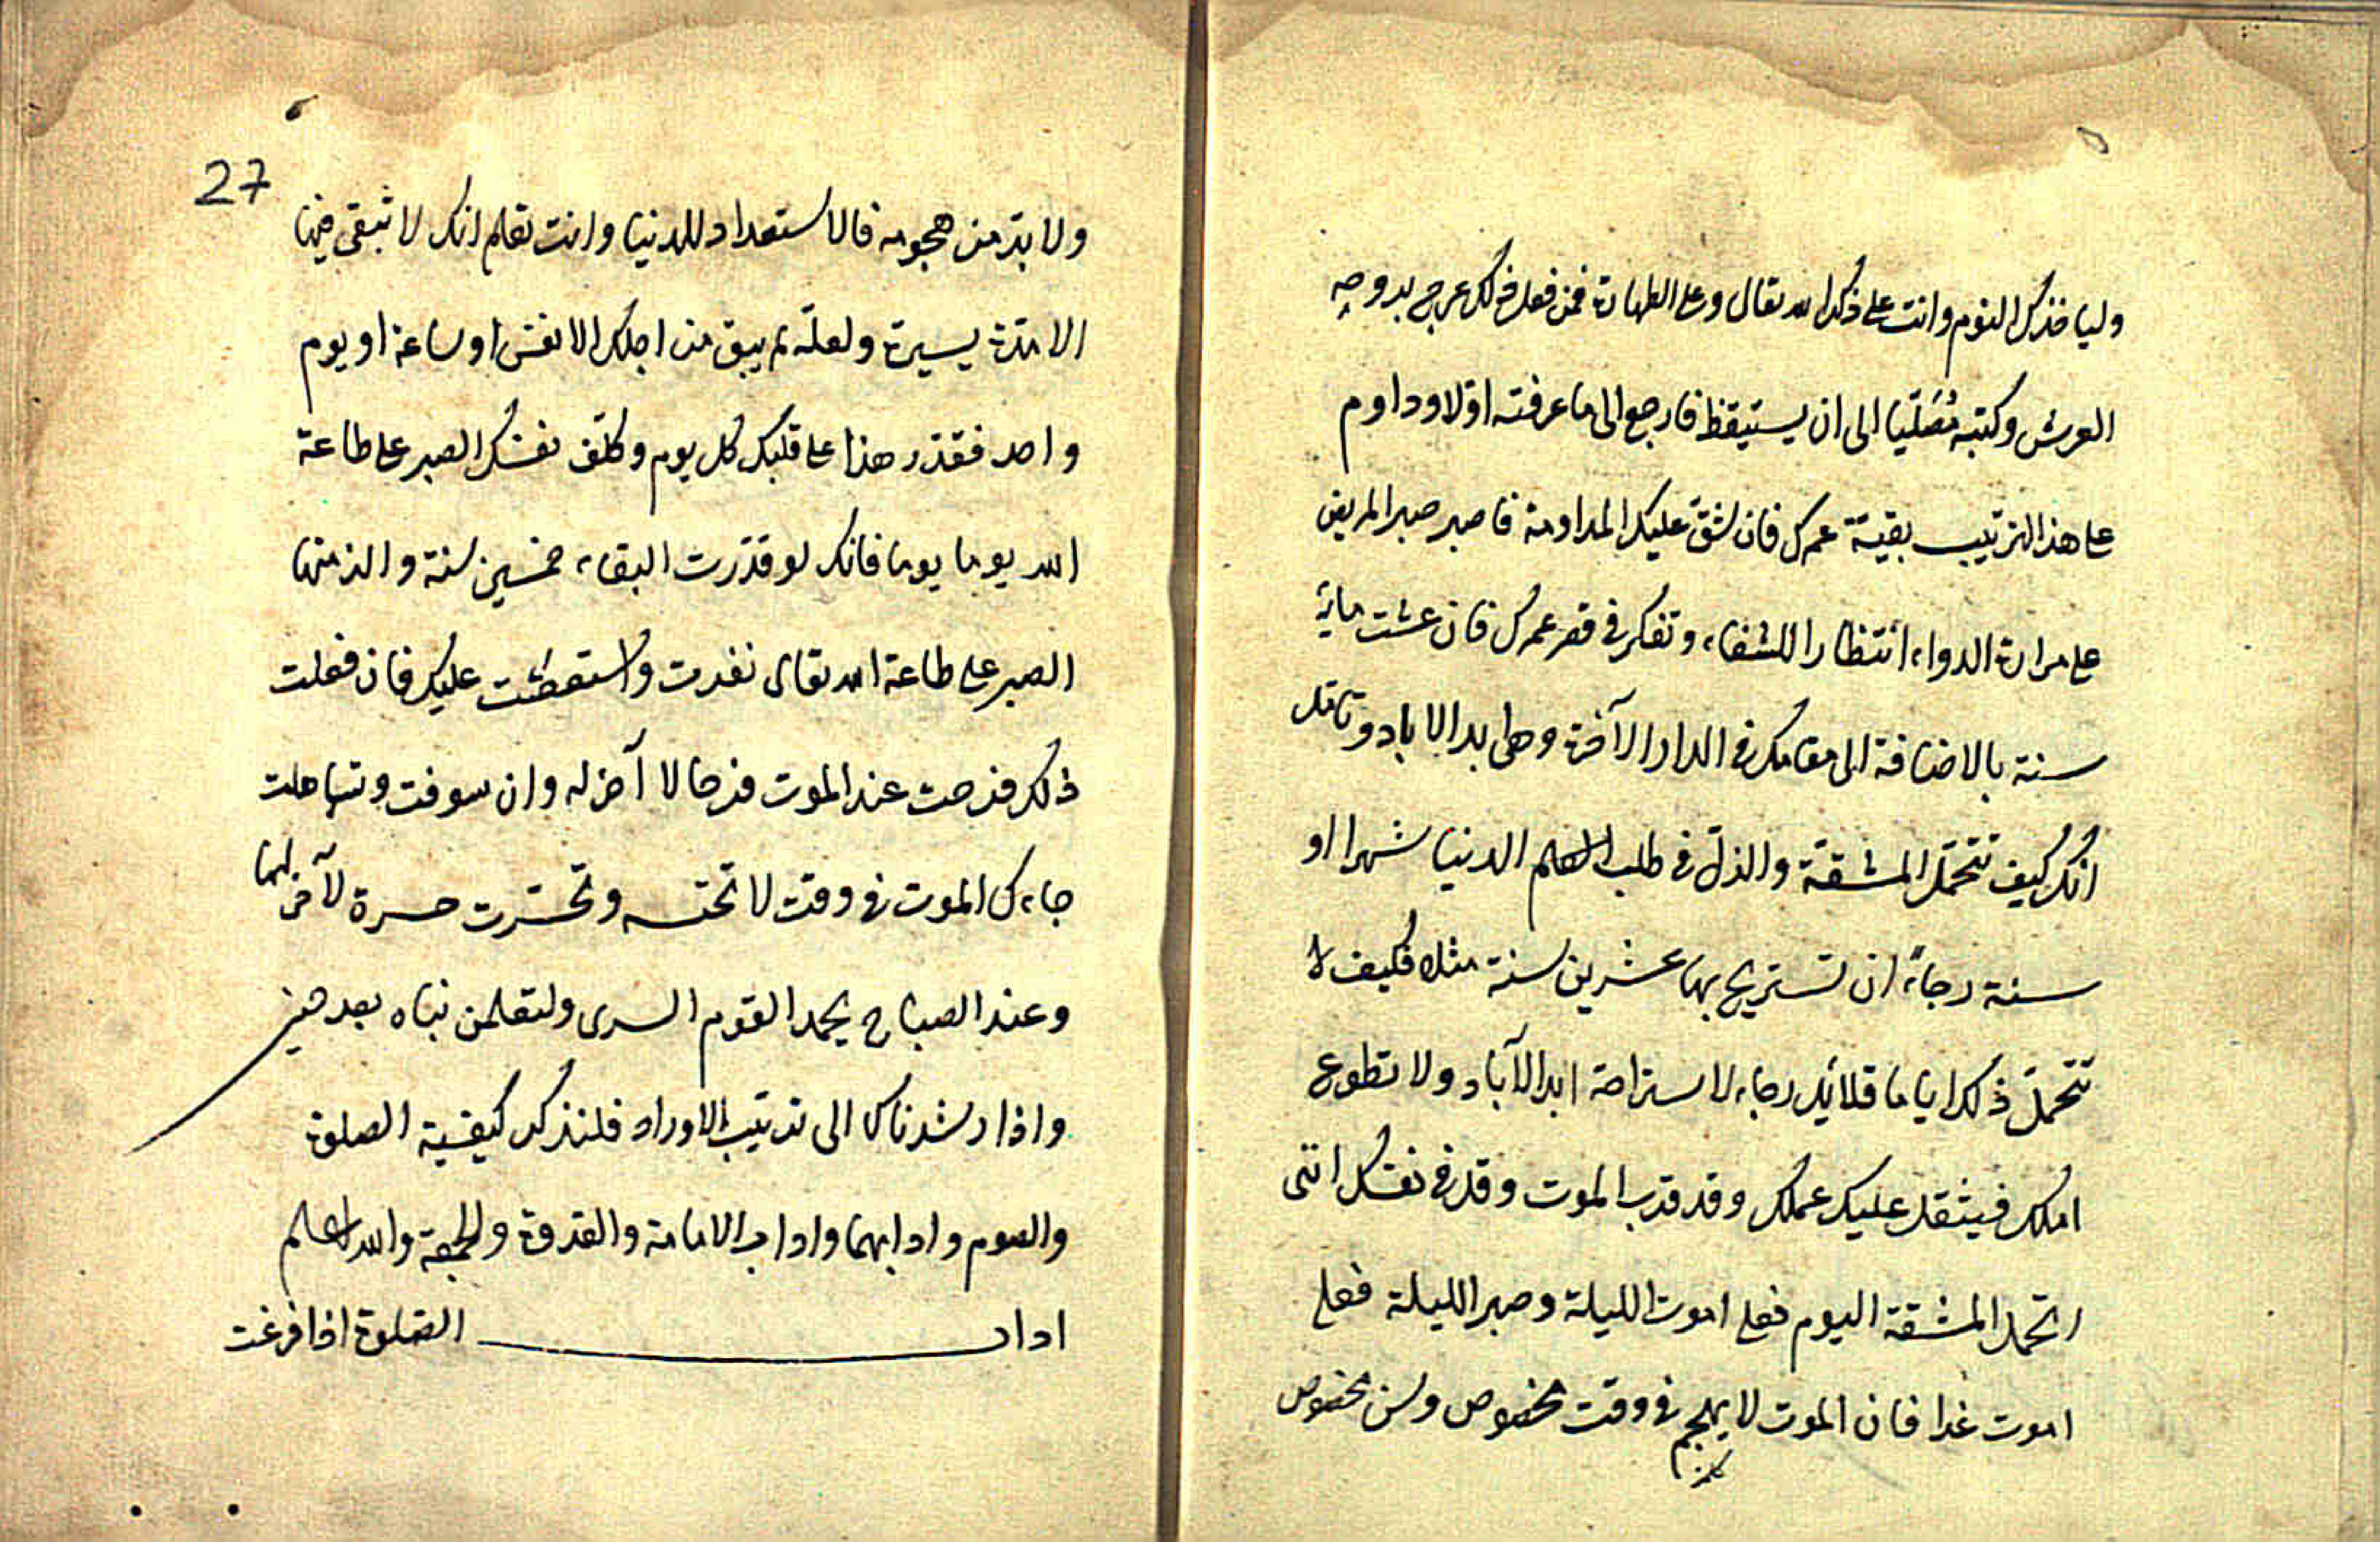 ولياخذك النوم وانت على ذكر الله تعالى وعلى الطهارة فمن فعل ذلك عرج بروحه
العرش وكتبه مُصَلّيا الى ان يستيقظ فارجع الى ما عرفته اوّلا وداوم
على هذا الترتيب بقيّة عمرك فان شقّ عليك المداومة فاصبر صبر المريض
على مرارة الدواء انتظارا للشفاء وتفكر في قصر عمرك فان عشت ماية
سنة بالاضافة الى مقامك في الدار الآخرة وهي ابد الاباد وتامّل
انك كيف تتحمّل المشقّة والذلّ في طلب العلم الدنيا شهرا او
سنة رجاءً ان تستريح بها عشرين سنة مثلا فكيف لا
تتحمّل ذلك اياما قلائل رجاء لاستراحة ابد الآباد ولا تطوع
املك فيثقل عليك عملك وقد قرب الموت وقل في نفسك انني
اتحمل المشقة اليوم فعلى اموت الليلة وصبر الليلة فعلى
اموت غدا فان الموت لا يهجم في وقت مخصوص وسن مخصوص
27
ولا بدّ من هجومه فالاستعداد للدنيا وانت تعلم انك لا تبقى فيها
الا مدّة يسيرة ولعلّه لم يبق من اجلك الا نفس او ساعة او يوم
واحد فقدّر هذا على قلبك كل يوم وكلّف نفسك الصبر على طاعة
الله يوما يوما فانك لو قدّرت البقاء خمسين سنة والزمتها
الصبر على طاعة الله تعالى نفرت واستعصت عليك فان فعلت
ذلك فرحت عند الموت فرحا لا آخر له وان سوفت وتساهلت
جاءك الموت في وقت لا تحتسبه وتحسّرت حسرة لآخر لها
وعند الصباح يحمد القوم السرى ولتعلمن نباه بعد حين
واذا رشدناك الى ترتيب الاوراد فلنذكر كيفية الصلوة
والصوم وادابهما واداب الامامة والقدوة والجمعة والله اعلم
اداب الصّلوة اذا فرغت